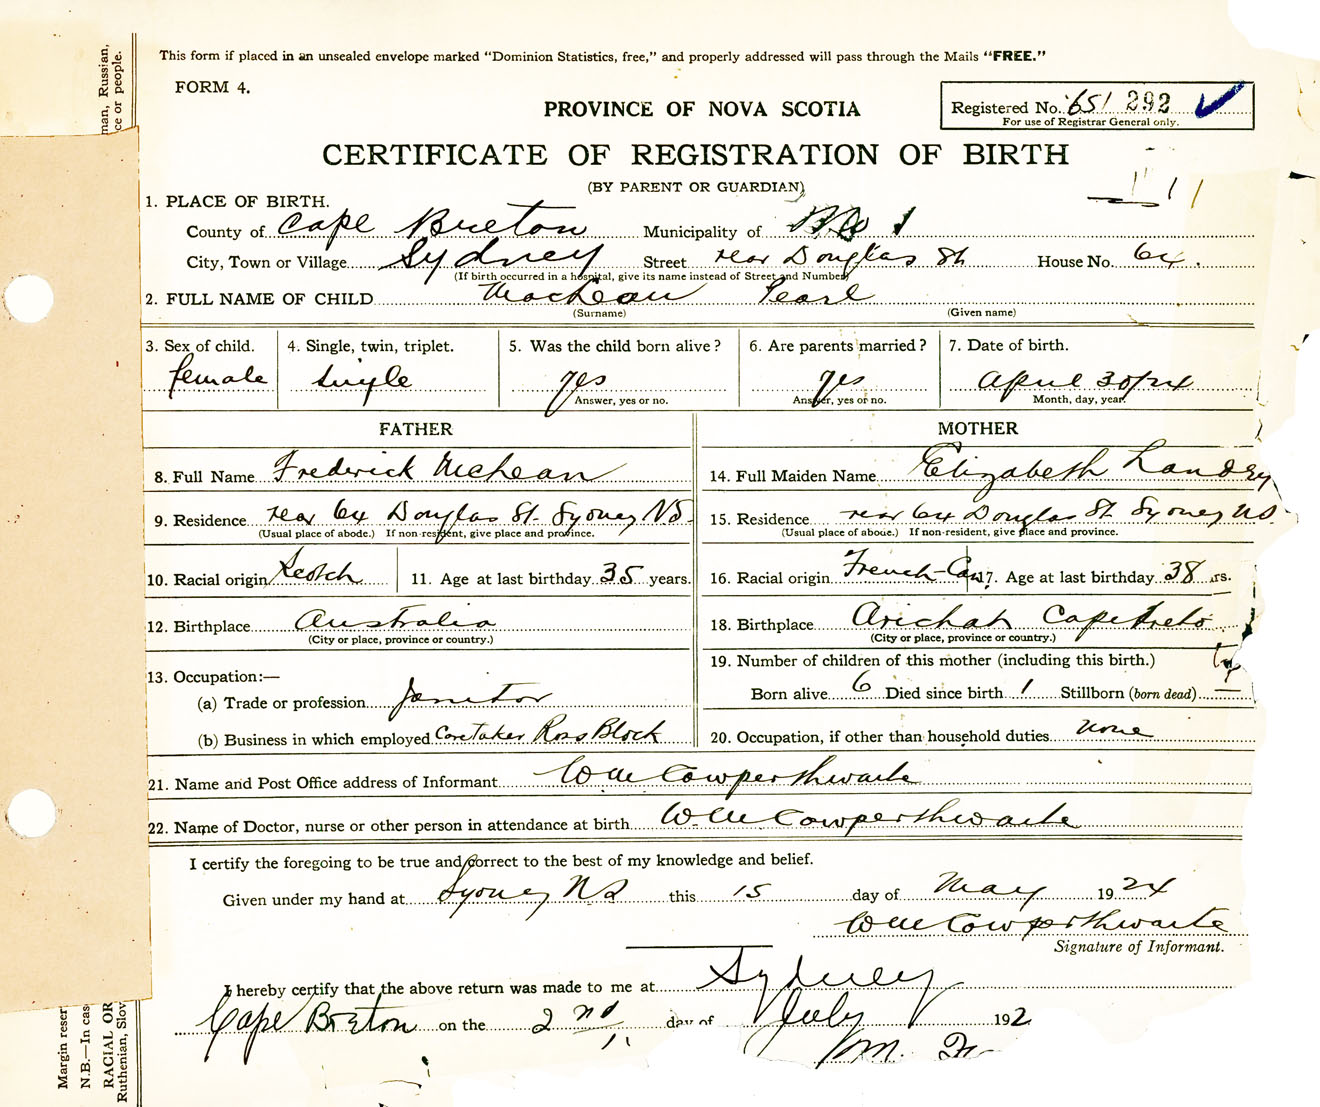 This form if placed in an unsealed envelope marked "Dominion Statistics, free," and properly addressed will pass through the Mails "FREE."
FORM 4.
PROVINCE OF NOVA SCOTIA
Registered No. 651 292
For use of Registrar General only.
CERTIFICATE OF REGISTRATION OF BIRTH
(BY PARENT OR GUARDIAN)
1. PLACE OF BIRTH.
County of Cape Breton Municipality of
City, Town or Village Sydney Street rear Douglas St House No. 64.
(If birth occurred in a hospital, give its name instead of Street and Number)
2. FULL NAME OF CHILD MacLean Pearl
(Surname) (Given name)
3. Sex of child. 4. Single, twin, triplet. 5. Was the child born alive? 6. Are parents married? 7. Date of birth.
female single yes yes April 30/24
Answer, yes or no. Answer, yes or no. Month, day, year.
FATHER
8. Full Name Frederick McLean
9. Residence rear 64 Douglas St. Sydney NS.
(Usual place of abode.) If non-resident, give place and province.
10. Racial origin Scotch 11. Age at last birthday 35 years.
12. Birthplace Australia
(City or place, province or country.)
13. Occupation:—
(a) Trade or profession Janitor
(b) Business in which employed Caretaker Ross Block
MOTHER
14. Full Maiden Name Elizabeth Landry
15. Residence rear 64 Douglas St. Sydney NS.
(Usual place of aboue.) If non-resident, give place and province.
16. Racial origin French-Can 17. Age at last birthday 38 rs.
18. Birthplace Arichat Cape Breto
(City or place, province or country.)
19. Number of children of this mother (including this birth.)
Born alive 6 Died since birth 1 Stillborn (born dead) —
20. Occupation, if other than household duties none
21. Name and Post Office address of Informant Wm Cowperthwaite
22. Name of Doctor, nurse or other person in attendance at birth Wm Cowperthwaite
I certify the foregoing to be true and correct to the best of my knowledge and belief.
Given under my hand at Sydney NS this 15 day of May 1924
Wm Cowperthwaite
Signature of Informant.
I hereby certify that the above return was made to me at Sydney
Cape Breton on the 2nd day of July 192
man, Russian,
ce or people.
Margin reser
N.B.—In cas
RACIAL OR
Ruthenian, Slov